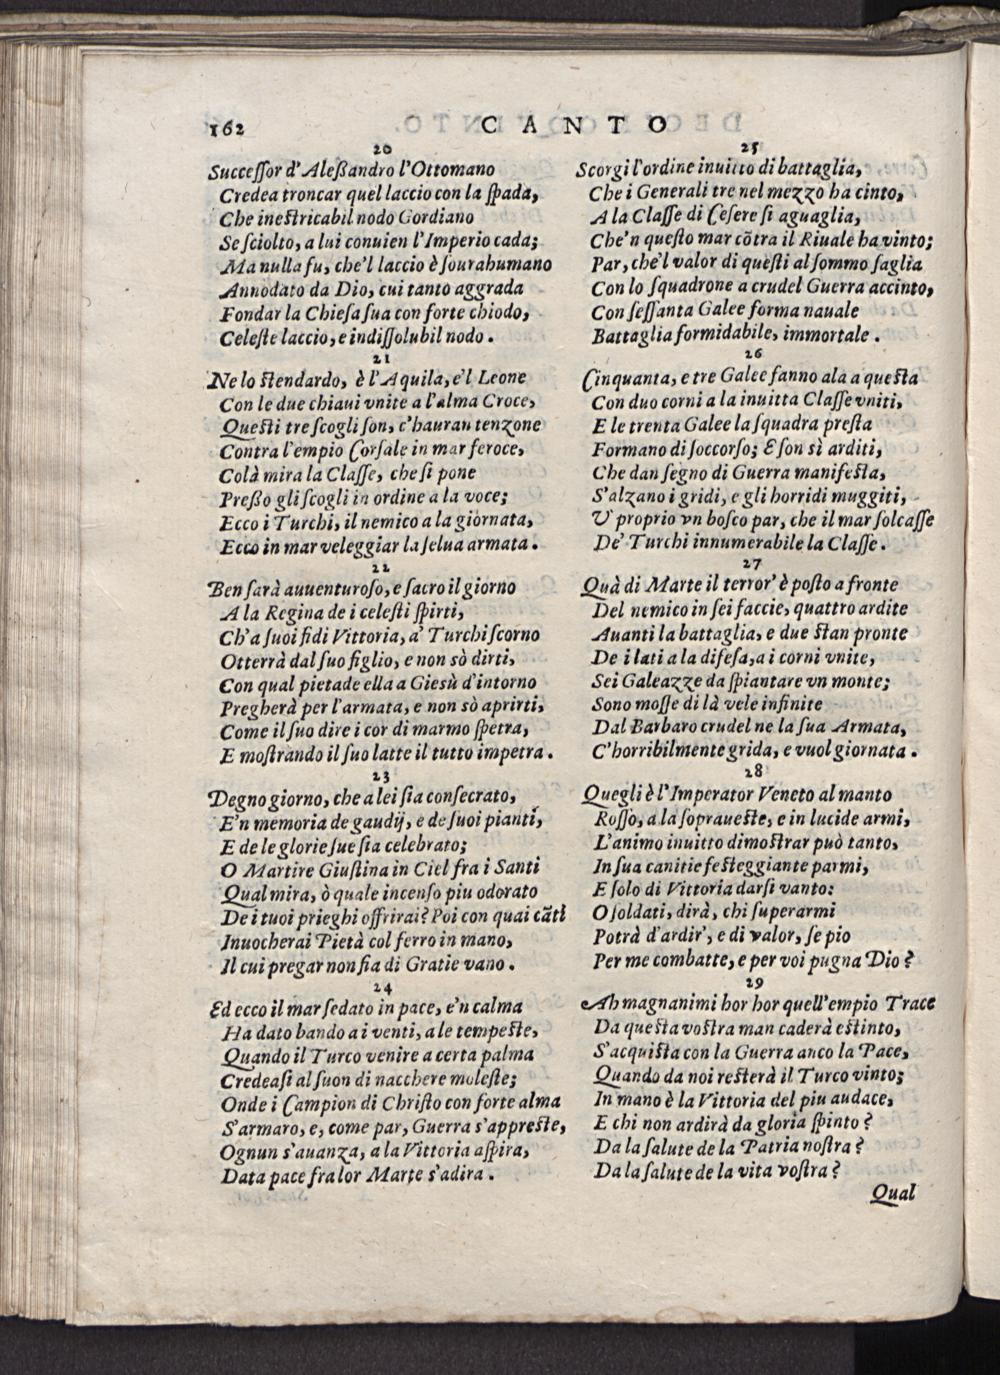 162
CANTO
20
Succeſſor d'Aleßandro l'Ottomano
Credea troncar quel laccio con la ſpada,
Che ineſtricabil nodo Gordiano
Se ſciolto, a lui conuien l'Imperio cada;
Ma nulla fu, che'l laccio è ſourahumano
Annodato da Dio, cui tanto aggrada
Fondar la Chieſa ſua con forte chiodo,
Celeſte laccio, e indiſſolubil nodo.
21
Ne lo ſtendardo, è l'Aquila, e'l Leone
Con le due chiaui vnite a l'alma Croce,
Queſti tre ſcogli ſon, c'hauran tenzone
Contra l'empio Corſale in mar feroce,
Colà mira la Claſſe, che ſi pone
Preßo gli ſcogli in ordine a la voce;
Ecco i Turchi, il nemico a la giornata,
Ecco in mar veleggiar la ſelua armata.
22
Ben ſarà auuenturoſo, e ſacro il giorno
A la Regina de i celeſti ſpirti,
Ch'a ſuoi fidi Vittoria, a' Turchi ſcorno
Otterrà dal ſuo figlio, e non sò dirti,
Con qual pietade ella a Giesù d'intorno
Pregherà per l'armata, e non sò aprirti,
Come il ſuo dire i cor di marmo ſpetra,
E moſtrando il ſuo latte il tutto impetra.
23
Degno giorno, che a lei ſia conſecrato,
E'n memoria de gaudij, e de ſuoi pianti,
E de le glorie ſue ſia celebrato;
O Martire Giuſtina in Ciel fra i Santi
Qual mira, ò quale incenſo piu odorato
De i tuoi prieghi offrirai? Poi con quai cãti
Inuocherai Pietà col ferro in mano,
Il cui pregar non fia di Gratie vano.
24
Ed ecco il mar ſedato in pace, e'n calma
Ha dato bando a i venti, a le tempeſte,
Quando il Turco venire a certa palma
Credeaſi al ſuon di nacchere moleſte;
Onde i Campion di Chriſto con forte alma
S'armaro, e, come par, Guerra s'appreſte,
Ognun s'auanza, a la Vittoria aſpira,
Data pace fra lor Marte s'adira.
25
Scorgi l'ordine inuitto di battaglia,
Che i Generali tre nel mezzo ha cinto,
A la Claſſe di Ceſere ſi aguaglia,
Che'n queſto mar cõtra il Riuale ha vinto;
Par, che'l valor di queſti al ſommo ſaglia
Con lo ſquadrone a crudel Guerra accinto,
Con ſeſſanta Galee forma nauale
Battaglia formidabile, immortale.
26
Cinquanta, e tre Galee fanno ala a queſta
Con duo corni a la inuitta Claſſe vniti,
E le trenta Galee la ſquadra preſta
Formano di ſoccorſo; E ſon sì arditi,
Che dan ſegno di Guerra manifeſta,
S'alzano i gridi, e gli horridi muggiti,
V' proprio vn boſco par, che il mar ſolcaſſe
De' Turchi innumerabile la Claſſe.
27
Quà di Marte il terror' è poſto a fronte
Del nemico in ſei faccie, quattro ardite
Auanti la battaglia, e due ſtan pronte
De i lati a la difeſa, a i corni vnite,
Sei Galeazze da ſpiantare vn monte;
Sono moſſe di là vele infinite
Dal Barbaro crudel ne la ſua Armata,
C'horribilmente grida, e vuol giornata.
28
Quegli è l'Imperator Veneto al manto
Roſſo, a la ſoprauеſte, e in lucide armi,
L'animo inuitto dimoſtrar può tanto,
In ſua canitie feſteggiante parmi,
E ſolo di Vittoria darſi vanto:
O ſoldati, dirà, chi ſuperarmi
Potrà d'ardir', e di valor, ſe pio
Per me combatte, e per voi pugna Dio?
29
Ah magnanimi hor hor quell'empio Trace
Da queſta voſtra man caderà eſtinto,
S'acquiſta con la Guerra anco la Pace,
Quando da noi reſterà il Turco vinto;
In mano è la Vittoria del piu audace,
E chi non ardirà da gloria ſpinto?
Da la ſalute de la Patria noſtra?
Da la ſalute de la vita voſtra?
Qual